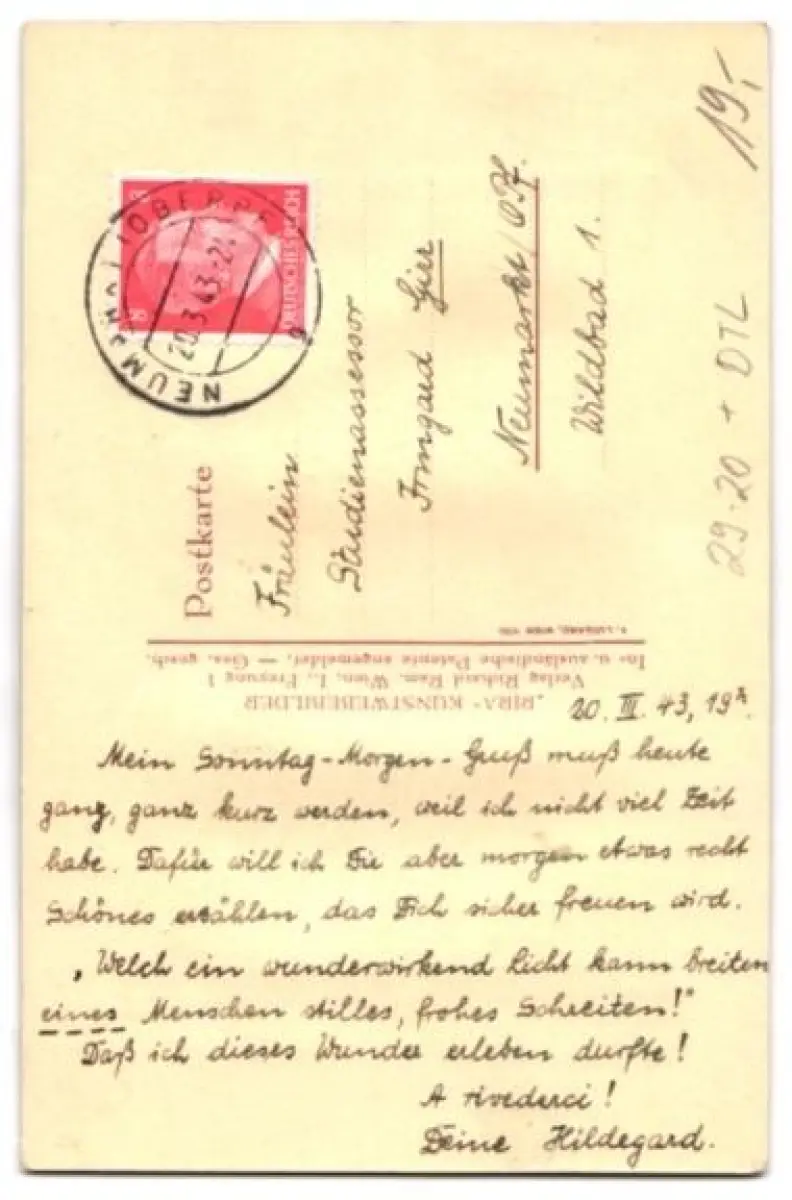 19,-
29-20 + DTL
DEUTSCHES REICH
NEUM (OBERPF
20.3.43.-2
Postkarte
Fräulein
Studienassessor
Irmgard Gier
Neumarkt/OPf.
Wildbad 1.
"BIRA" KUNSTWEBEBILDER
Verlag Richard Ram, Wien, I., Freyung 1
In- u. ausländische Patente angemeldet. — Ges. gesch.
20. III. 43, 19
Mein Sonntag-Morgen-Gruß muß heute
ganz, ganz kurz werden, weil ich nicht viel Zeit
habe. Dafür will ich Dir aber morgen etwas recht
Schönes erzählen, das Dich sicher freuen wird.
„Welch ein wunderwirkend Licht kann breiten
eines Menschen stilles, frohes Schreiten!"
Daß ich dieses Wunder erleben durfte!
A rivederci!
Deine Hildegard.